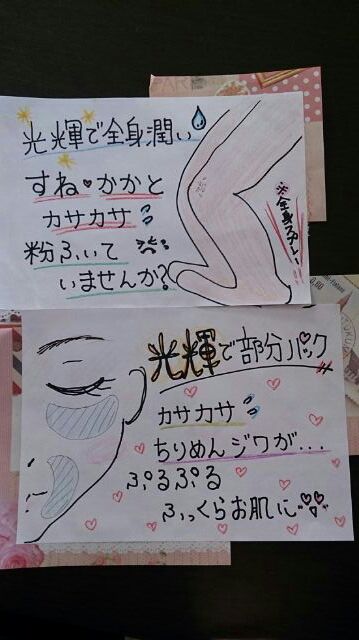 光輝で全身潤い
すね♥かかと
カサカサ
粉ふいて
いませんか?
※全身スプレー
光輝で部分パック
カサカサ
ちりめんジワが…
ぷるぷる
ふっくらお肌に